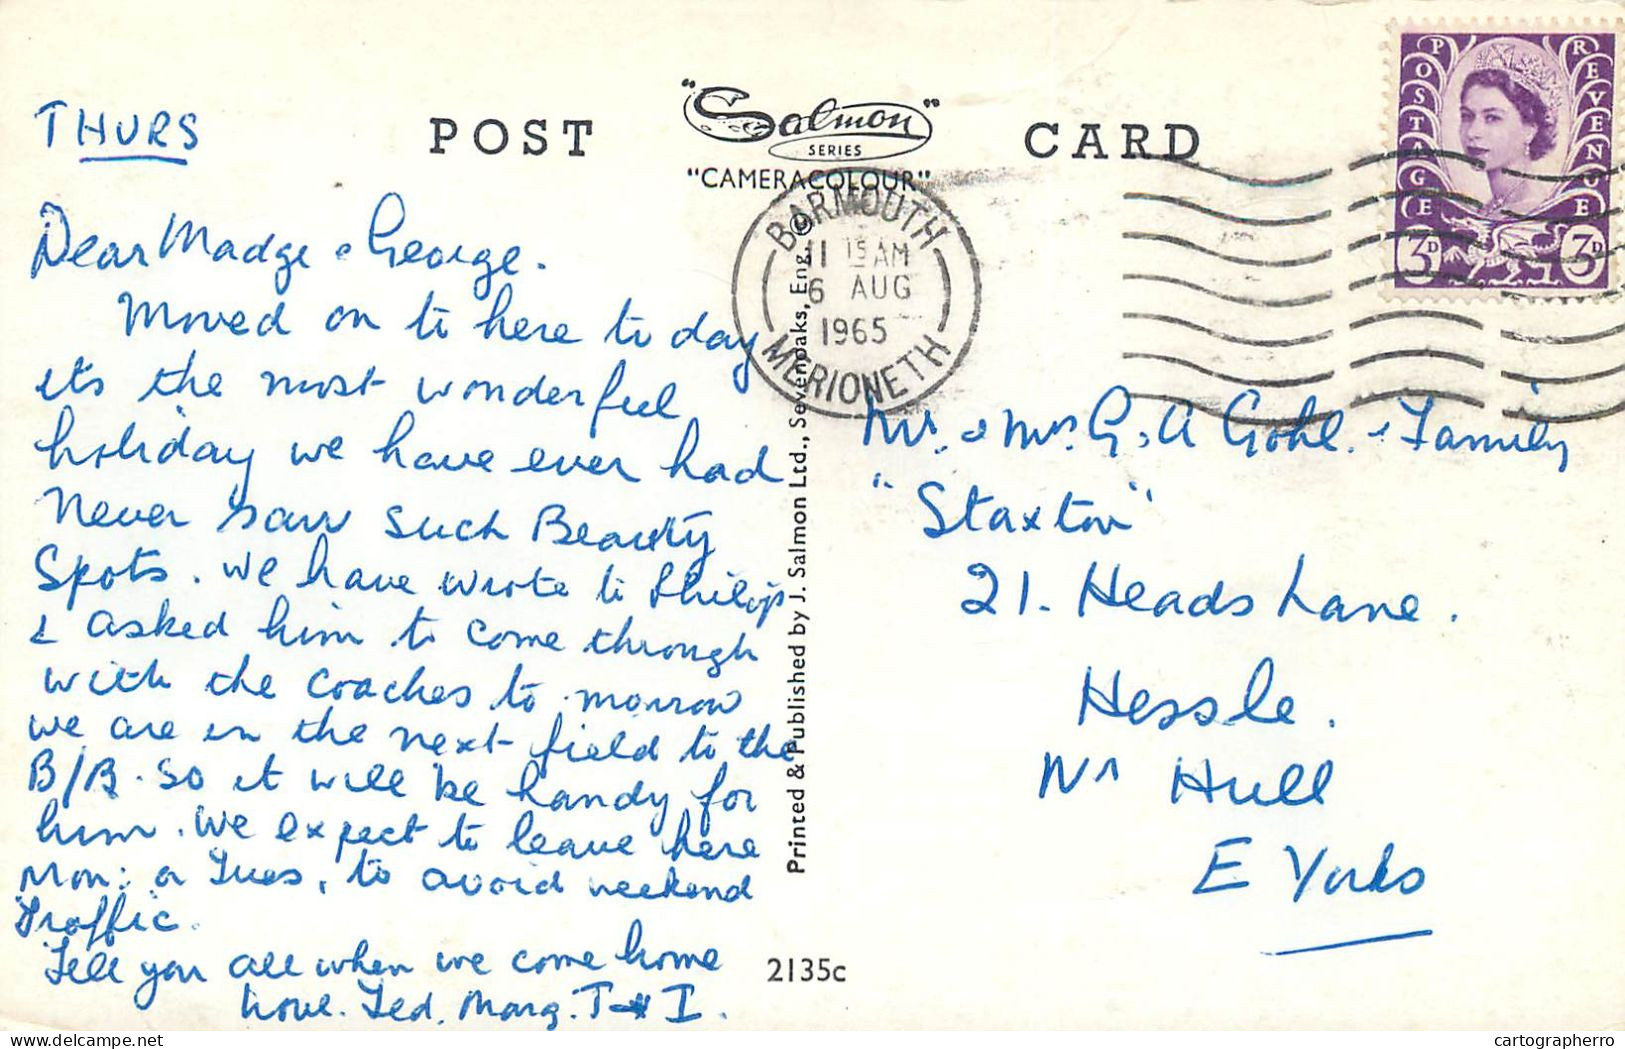 THURS
POST "Salmon" CARD
SERIES
"CAMERACOLOUR"
POSTAGE REVENUE
3D 3D
BARMOUTH
11 15 AM
6 AUG
1965
MERIONETH
Dear Madge & George.
Moved on to here to day
its the most wonderful
holiday we have ever had
Never saw such Beauty
Spots. We have wrote to Philip
& asked him to come through
with the coaches to-morrow
we are in the next field to the
B/B. So it will be handy for
him. We expect to leave here
Mon: or Tues, to avoid weekend
Traffic.
Tell you all when we come home
love. Ted. Marg. T & I.
Printed & Published by J. Salmon Ltd., Sevenoaks, Eng. ©
2135c
Mr. & Mrs. G. A Gohl. & Family
"Staxton"
21. Heads Lane.
Hessle.
Nr Hull
E Yorks
cartes-postales.delcampe.net
cartographerro